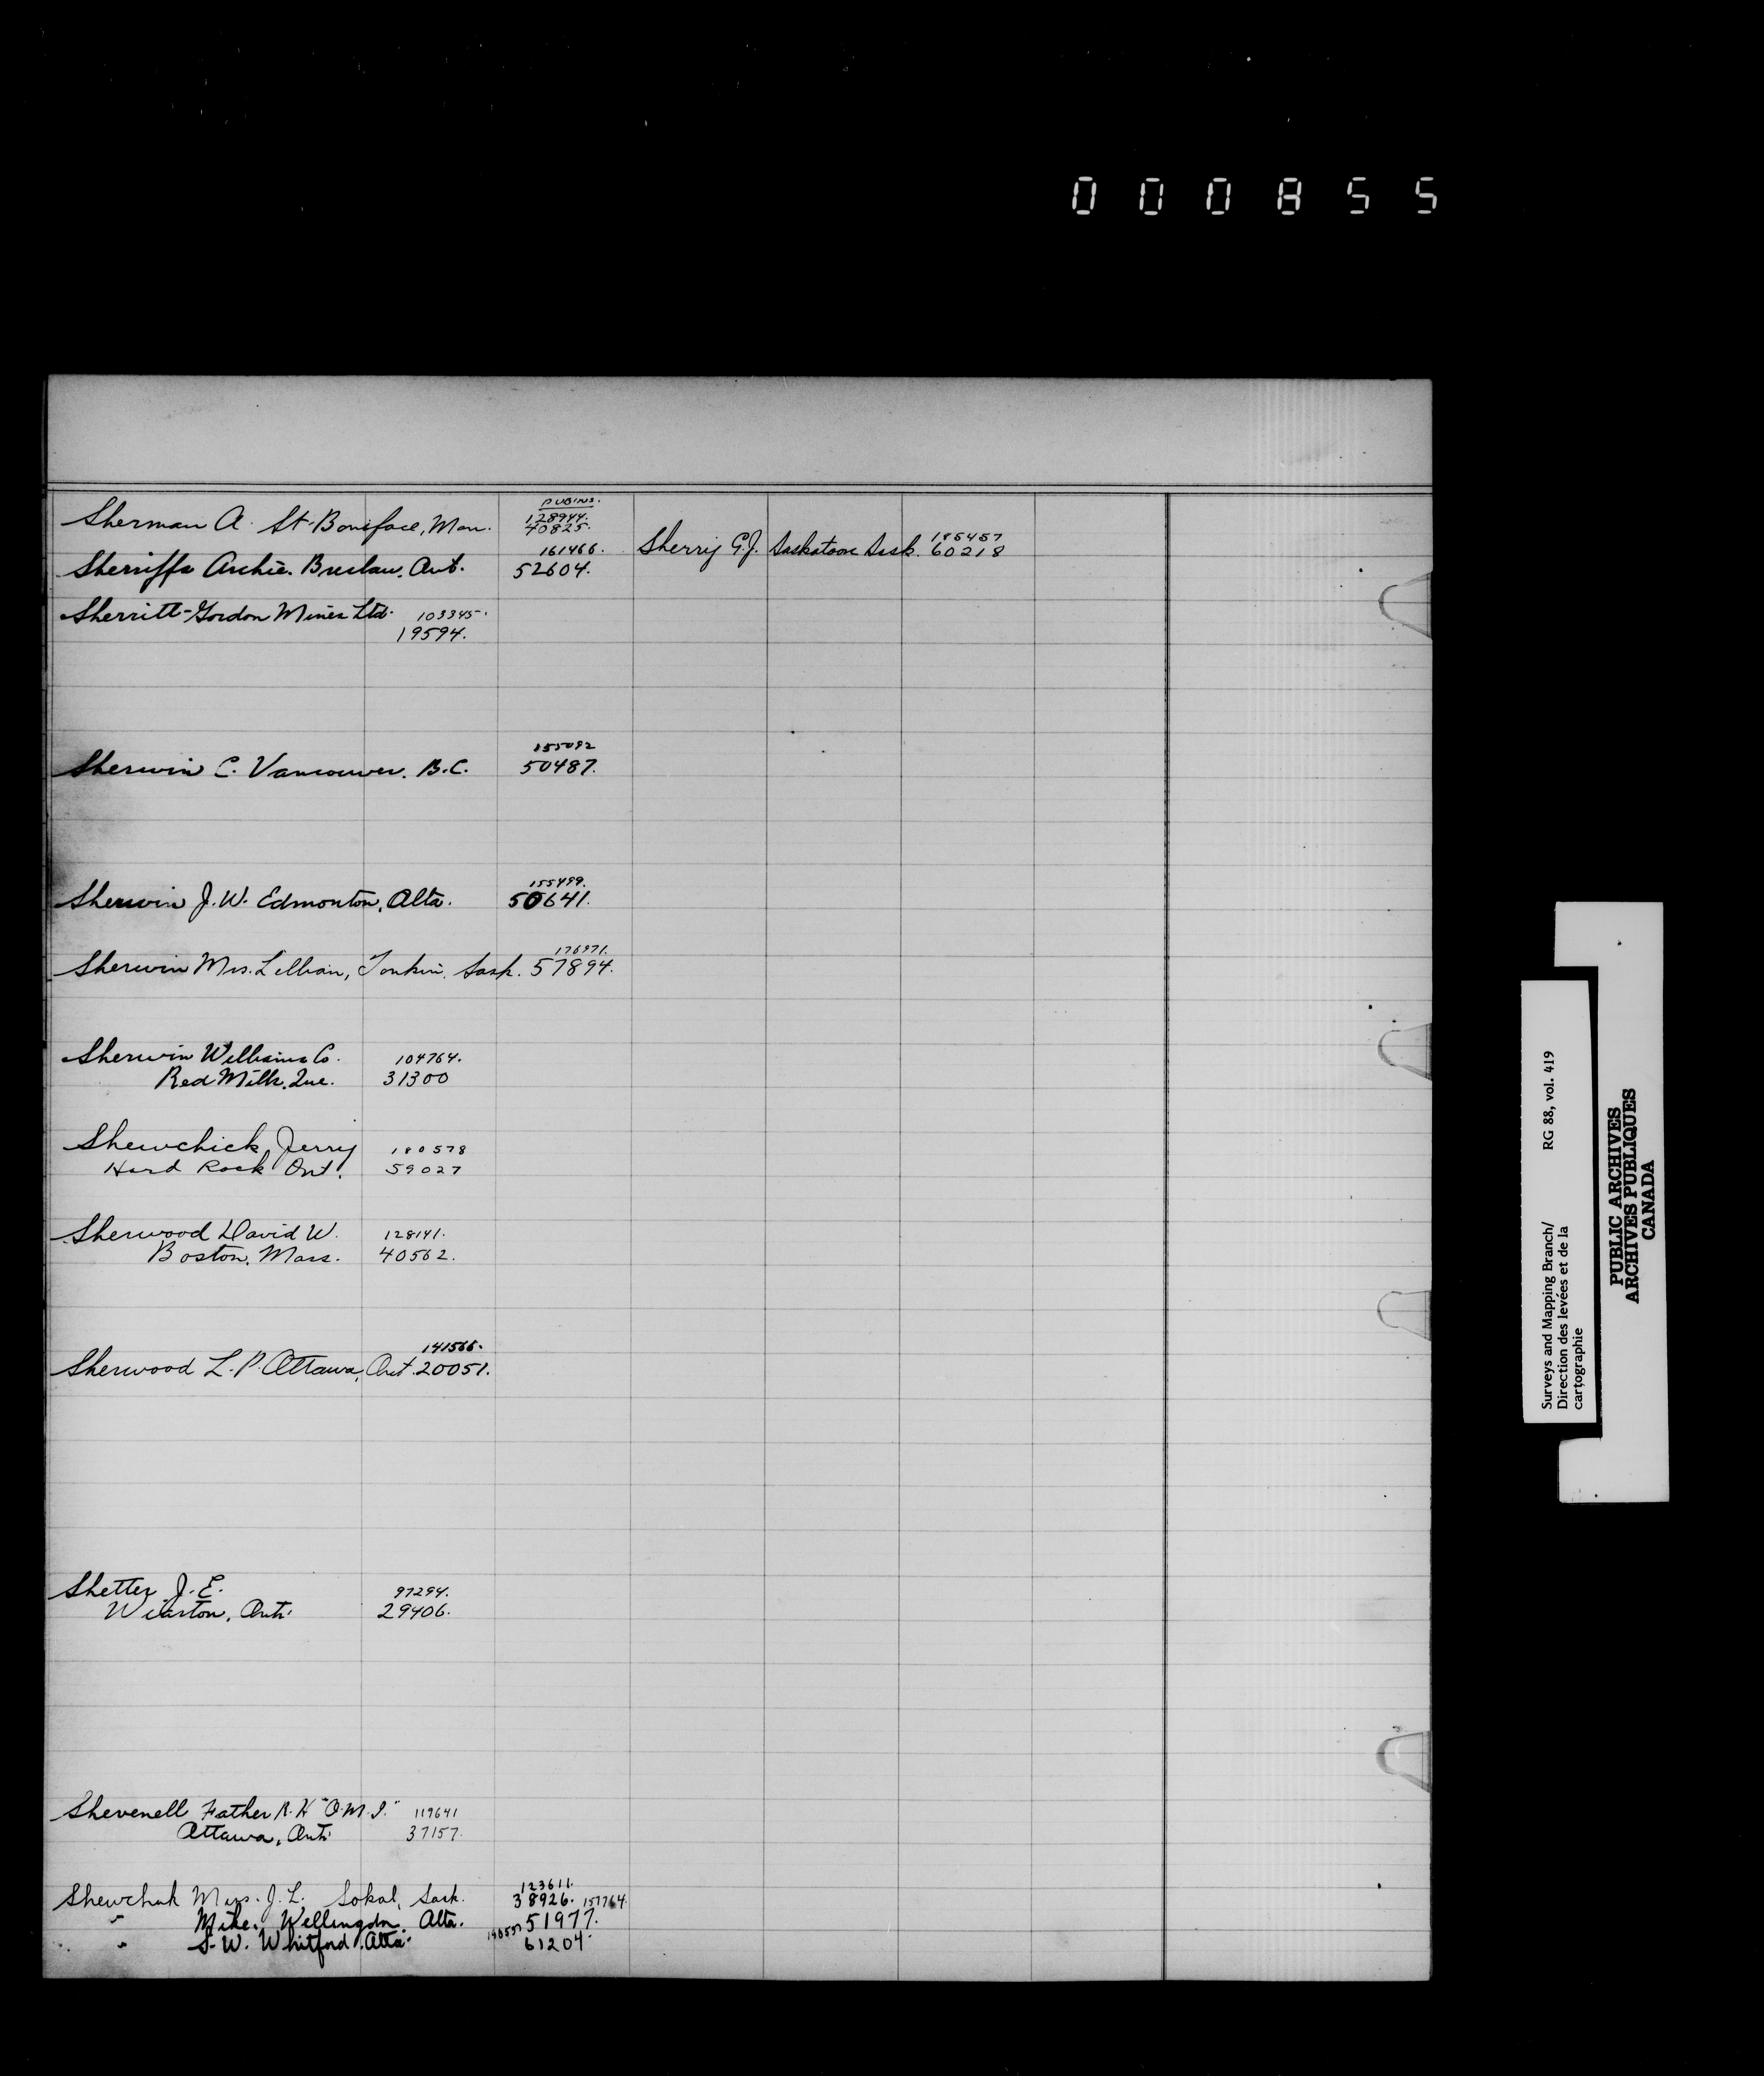 000855
PUBINS.
128944.
Sherman A. St-Boniface, Man. 40825.
161466. Sherrij G.J. Saskatoon Sask. 185457 60218
Sherriffs Archie. Breslau. Ont. 52604.
Sherritt-Gordon Mines Ltd. 103345.
19594.
155092
Sherwin C. Vancouver. B.C. 50487.
155499.
Sherwin J.W. Edmonton, Alta. 50641.
176971.
Sherwin Mrs. Lillian, Tonkin. Sask. 57894.
Sherwin Williams Co. 104764.
Red Mill. Que. 31300
Shewchick, Jerry 180578
Hard Rock Ont. 59027
Sherwood David W. 128141.
Boston. Mass. 40562.
141566.
Sherwood L.P. Ottawa, Ont. 20051.
Shetter J.E. 97294.
Wiarton. Ont. 29406.
Shevenell Father R.H "O.M.I." 119641
Ottawa, Ont. 37157.
123611.
Shewchuk Mrs. J.L. Sokal, Sask. 38926. 157764.
" Mike. Wellingdon. Alta. 51977.
" S.W. Whitford. Alta. 61204.
Surveys and Mapping Branch/ RG 88, vol. 419
Direction des levées et de la
cartographie
PUBLIC ARCHIVES
ARCHIVES PUBLIQUES
CANADA